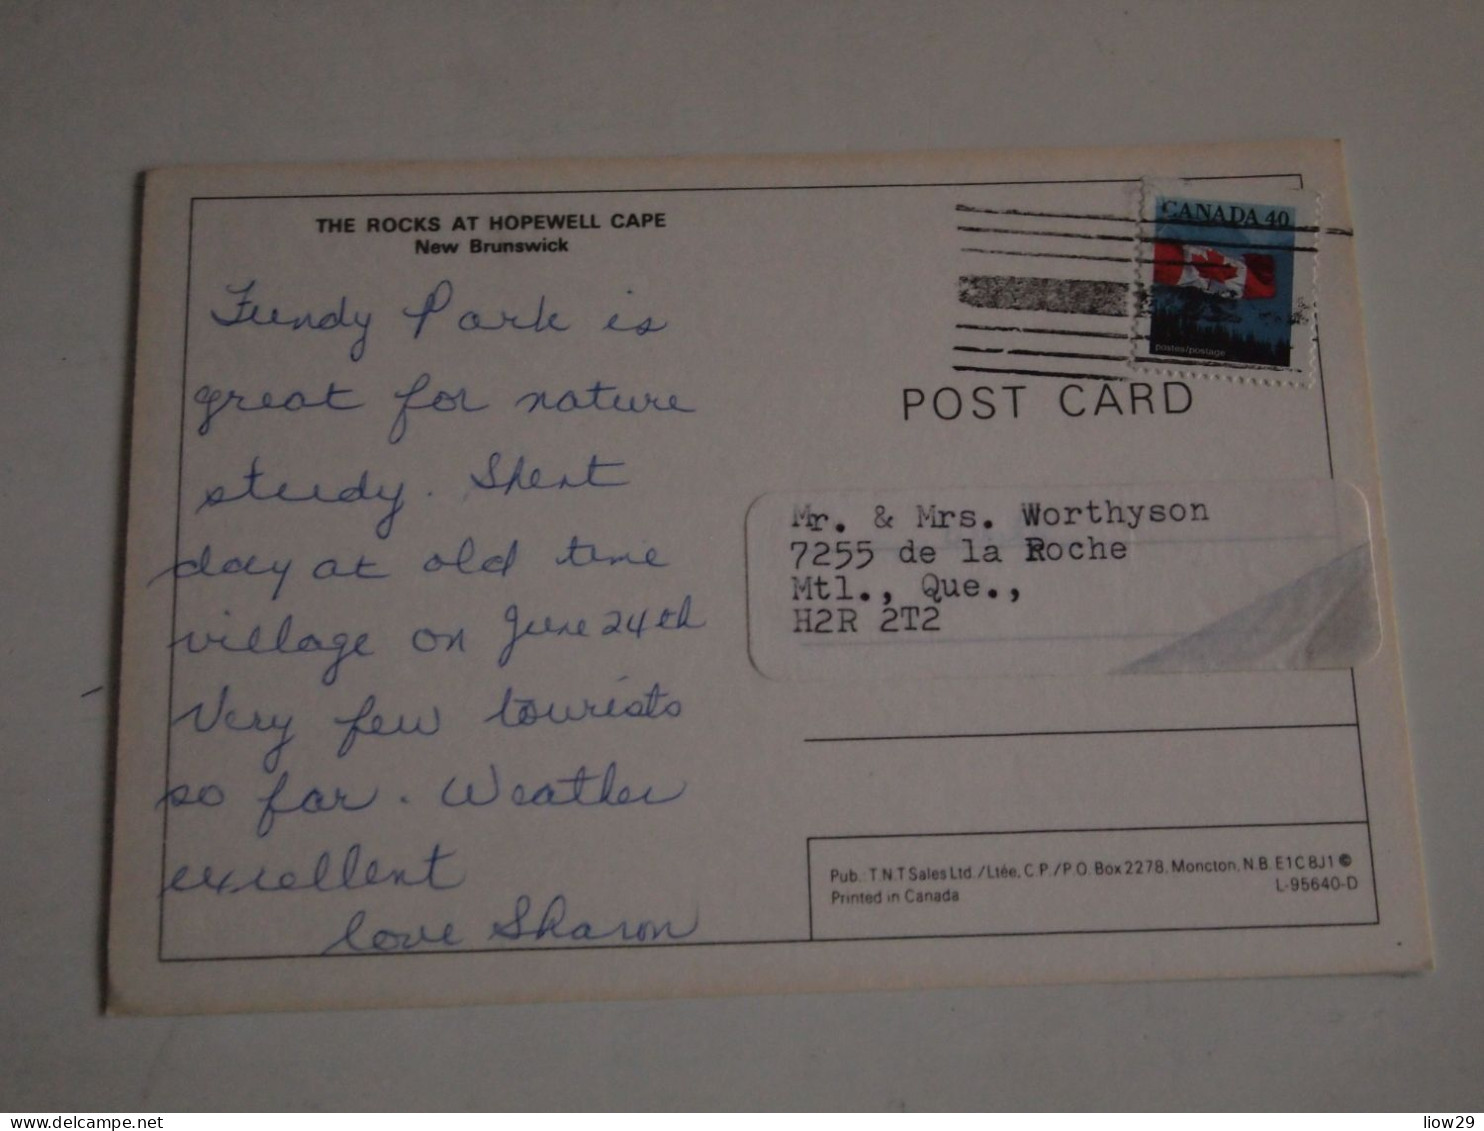 THE ROCKS AT HOPEWELL CAPE
New Brunswick
Fundy Park is
great for nature
study. Spent
day at old time
village on June 24th
Very few tourists
so far. Weather
excellent
love Sharon
CANADA 40
postes/postage
POST CARD
Mr. & Mrs. Worthyson
7255 de la Roche
Mtl., Que.,
H2R 2T2
Pub.: T.N.T Sales Ltd./Ltée, C.P./P.O. Box 2278, Moncton, N.B. E1C 8J1 ©
Printed in Canada
L-95640-D
delcampe.net
liow29